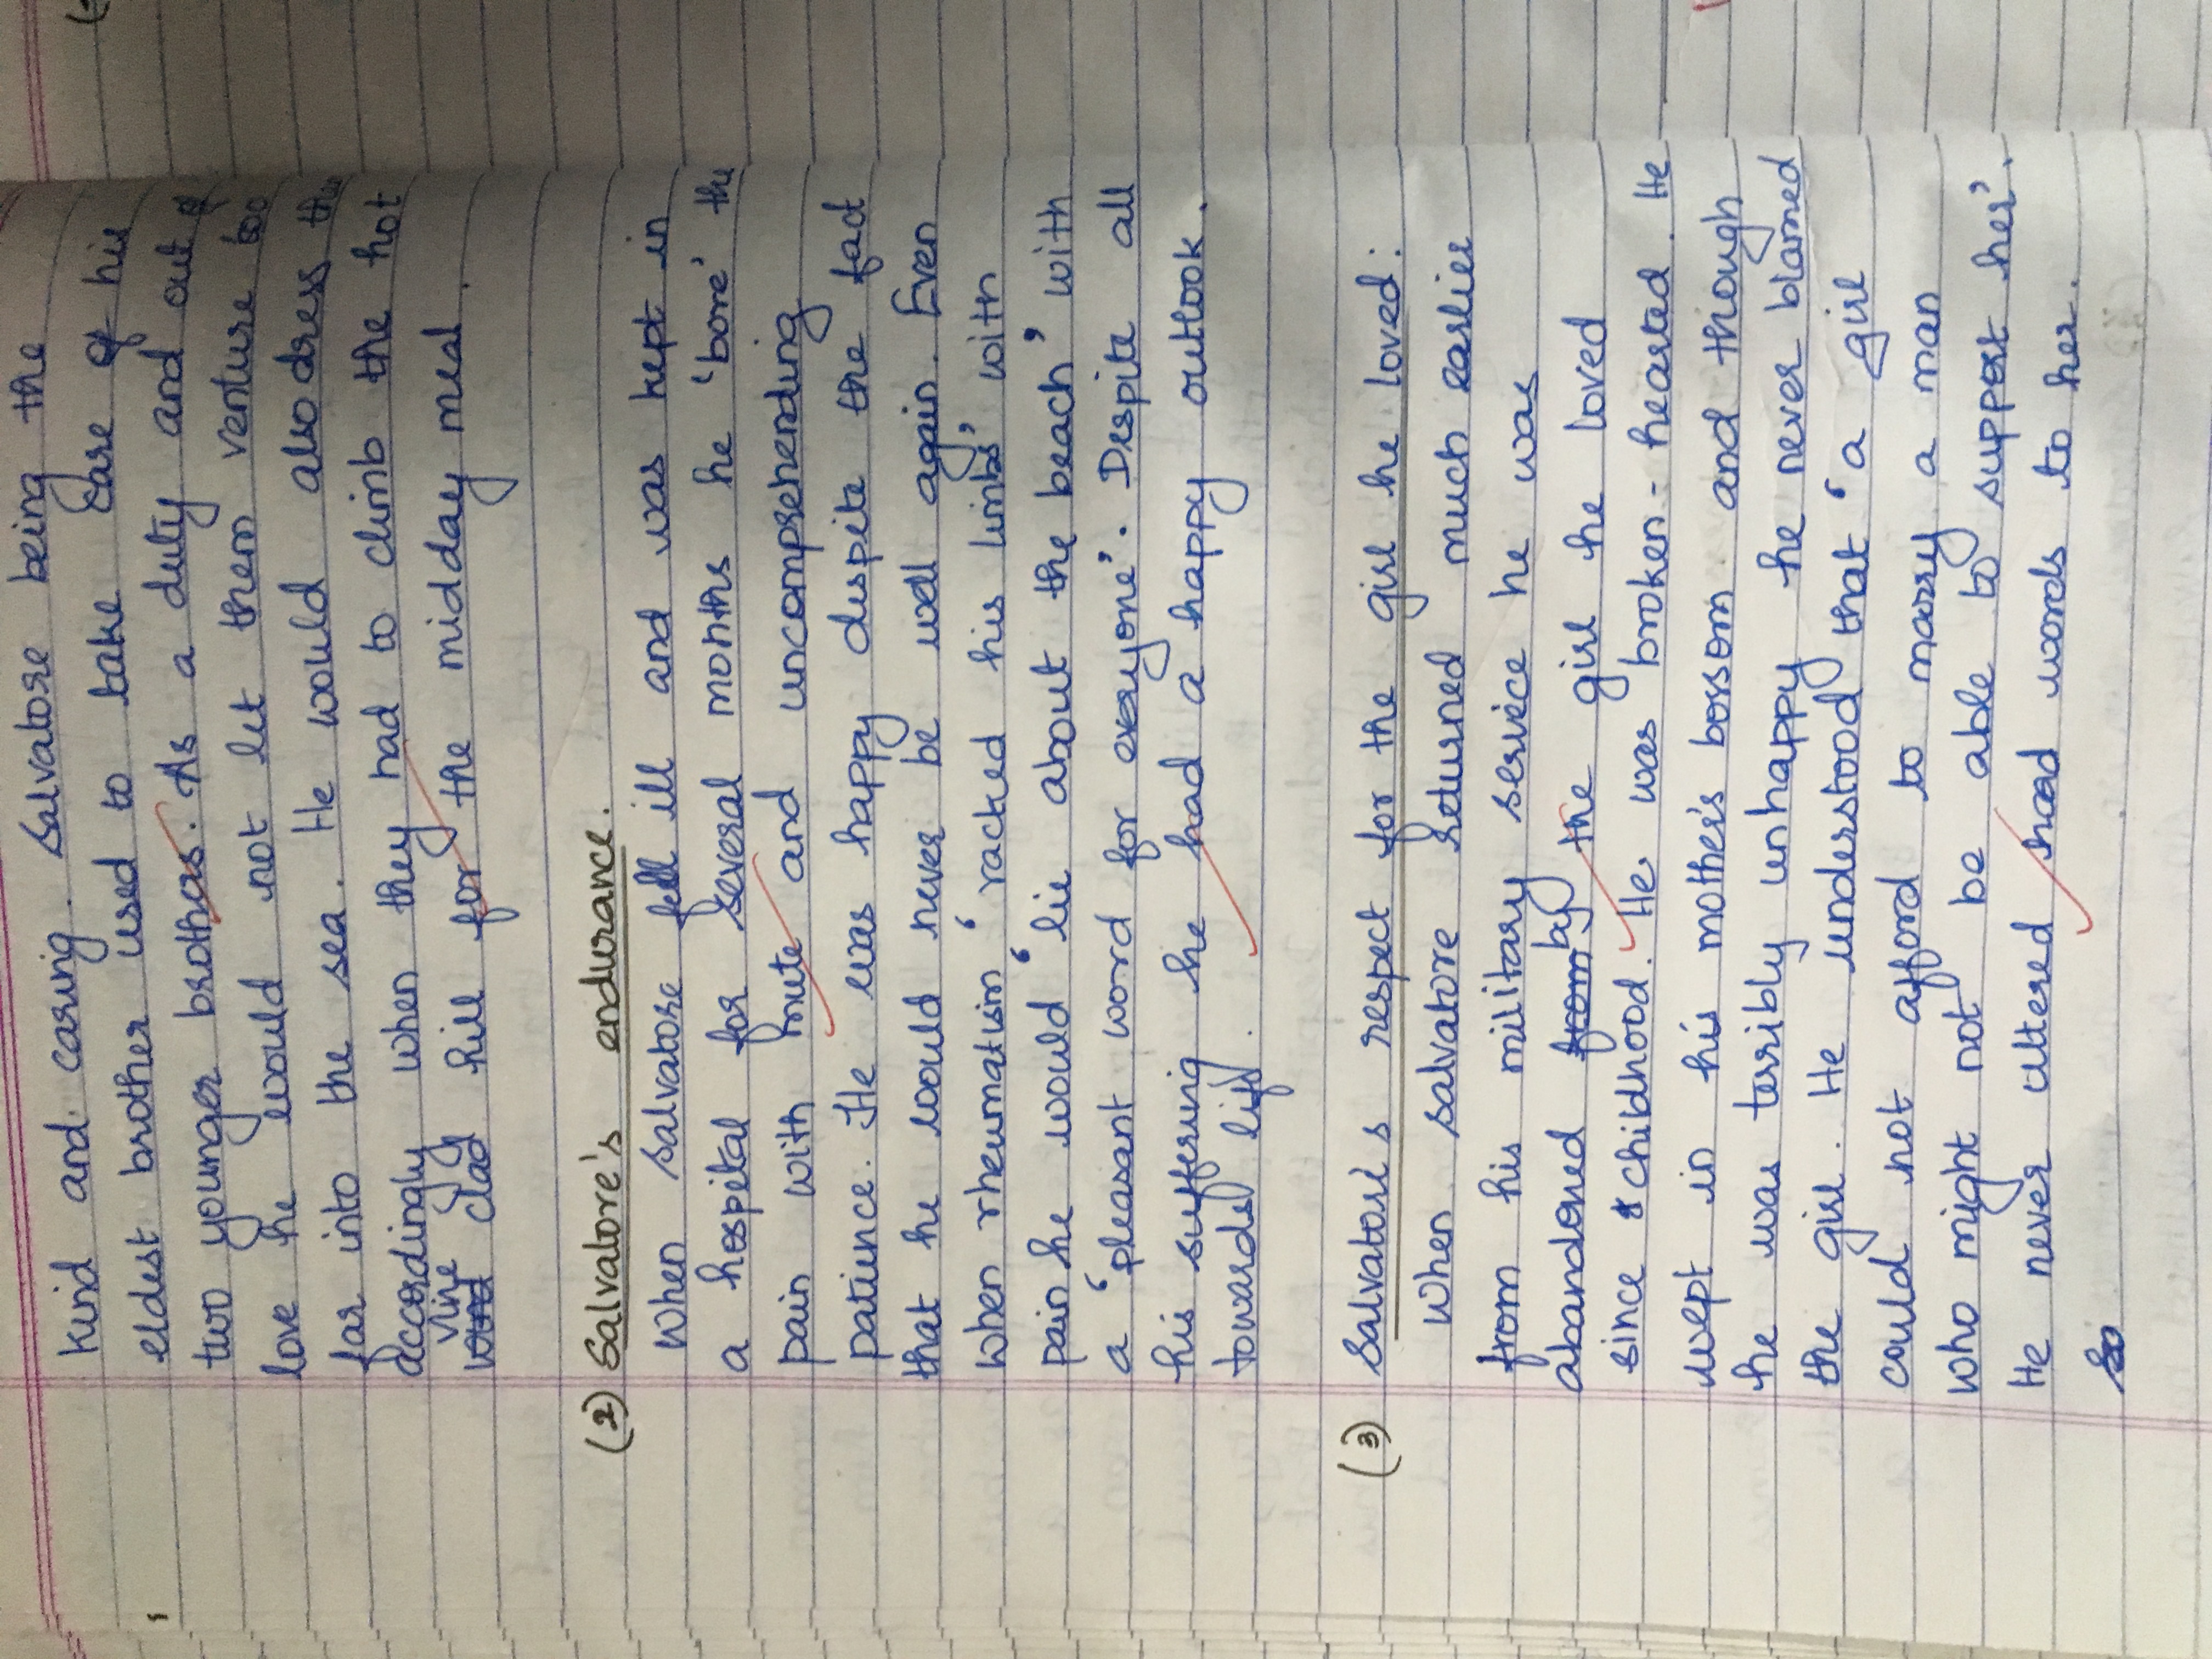 kind and caring. Salvatore being the
eldest brother used to take care of his
two younger brothers. As a duty and out of
love he would not let them venture too
far into the sea. He would also dress
accordingly when they had to climb the hot
vine
wind clad hill for the midday meal.
(2) Salvatore's endurance.
When Salvatore fell ill and was kept in
a hospital for several months he 'bore' the
pain with mute and uncomprehending
patience. He was happy despite the fact
that he would never be well again. Even
when rheumatism 'racked his limbs' with
pain he would 'lie about the beach' with
a 'pleasant word for everyone'. Despite all
his suffering he had a happy outlook.
towards life.
(3) Salvatore's respect for the girl he loved:
When Salvatore returned much earlier
from his military service he was
abandoned from by the girl he loved
since childhood. He was broken-hearted. He
wept in his mother's bossom and though
he was terribly unhappy he never blamed
the girl. He understood that 'a girl
could not afford to marry a man
who might not be able to support her'.
He never uttered hard words to her.
So